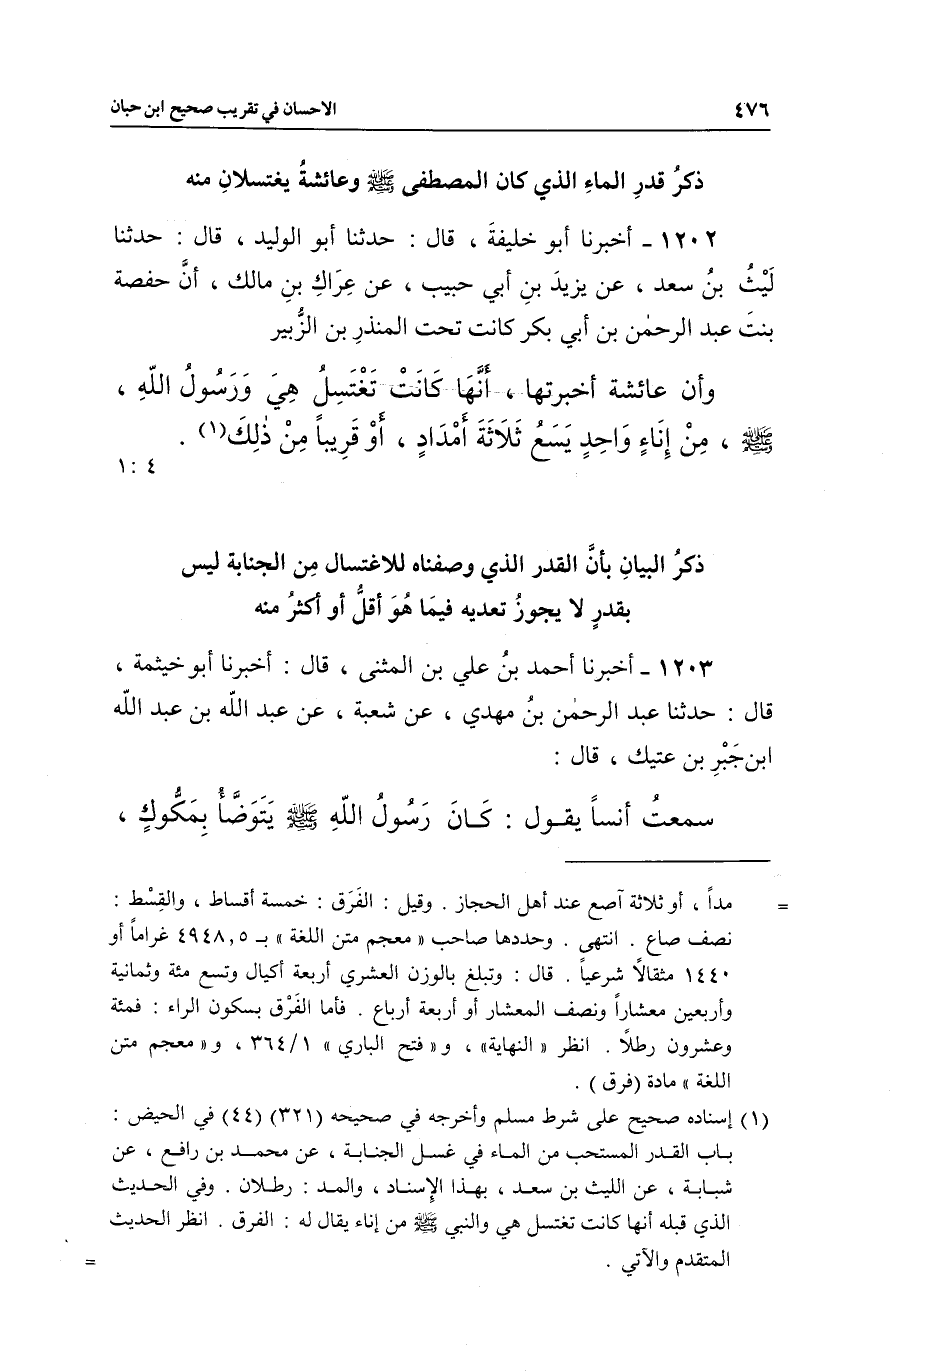 ٤٧٦ الاحسان في تقريب صحيح ابن حبان
ذكرُ قدرِ الماءِ الذي كان المصطفى ﷺ وعائشةُ يغتسلانِ منه
١٢٠٢ ـ أخبرنا أبو خليفةَ ، قال : حدثنا أبو الوليد ، قال : حدثنا
لَيْثُ بنُ سعد ، عن يزيدَ بنِ أبي حبيب ، عن عِرَاكِ بنِ مالك ، أنَّ حفصة
بنتَ عبد الرحمٰن بن أبي بكر كانت تحت المنذرِ بن الزُّبير
وأن عائشة أخبرتها ، أَنَّهَا كَانَتْ تَغْتَسِلُ هِيَ وَرَسُولُ اللّهِ ،
ﷺ ، مِنْ إِنَاءٍ وَاحِدٍ يَسَعُ ثَلَاثَةَ أَمْدَادٍ ، أَوْ قَرِيباً مِنْ ذٰلِكَ(١) .
٤ : ١
ذكرُ البيانِ بأنَّ القدر الذي وصفناه للاغتسال مِن الجنابة ليس
بقدرٍ لا يجوزُ تعديه فيمَا هُوَ أقلُّ أو أكثرُ منه
١٢٠٣ ـ أخبرنا أحمد بنُ علي بن المثنى ، قال : أخبرنا أبو خيثمة ،
قال : حدثنا عبد الرحمٰن بنُ مهدي ، عن شعبة ، عن عبد اللّه بن عبد اللّه
ابن جَبْرِ بن عتيك ، قال :
سمعتُ أنساً يقول : كَانَ رَسُولُ اللّهِ ﷺ يَتَوَضَّأُ بِمَكُّوكٍ ،
= مداً ، أو ثلاثة آصع عند أهل الحجاز . وقيل : الفَرَق : خمسة أقساط ، والقِسْط :
نصف صاع . انتهى . وحددها صاحب « معجم متن اللغة » بـ ٤٩٤٨,٥ غراماً أو
١٤٤٠ مثقالاً شرعياً . قال : وتبلغ بالوزن العشري أربعة أكيال وتسع مئة وثمانية
وأربعين معشاراً ونصف المعشار أو أربعة أرباع . فأما الفَرْق بسكون الراء : فمئة
وعشرون رطلاً . انظر « النهاية» ، و« فتح الباري » ٣٦٤/١ ، و« معجم متن
اللغة » مادة (فرق ) .
(١) إسناده صحيح على شرط مسلم وأخرجه في صحيحه (٣٢١) (٤٤) في الحيض :
باب القدر المستحب من الماء في غسل الجنابة ، عن محمد بن رافع ، عن
شبابة ، عن الليث بن سعد ، بهذا الإسناد ، والمد : رطلان . وفي الحديث
الذي قبله أنها كانت تغتسل هي والنبي ﷺ من إناء يقال له : الفرق . انظر الحديث
المتقدم والآتي . =